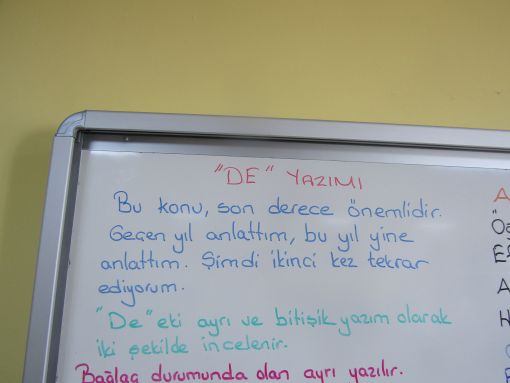 "DE" YAZIMI
Bu konu, son derece önemlidir.
Geçen yıl anlattım, bu yıl yine
anlattım. Şimdi ikinci kez tekrar
ediyorum.
"De" eki ayrı ve bitişik yazım olarak
iki şekilde incelenir.
Bağlaç durumunda olan ayrı yazılır.